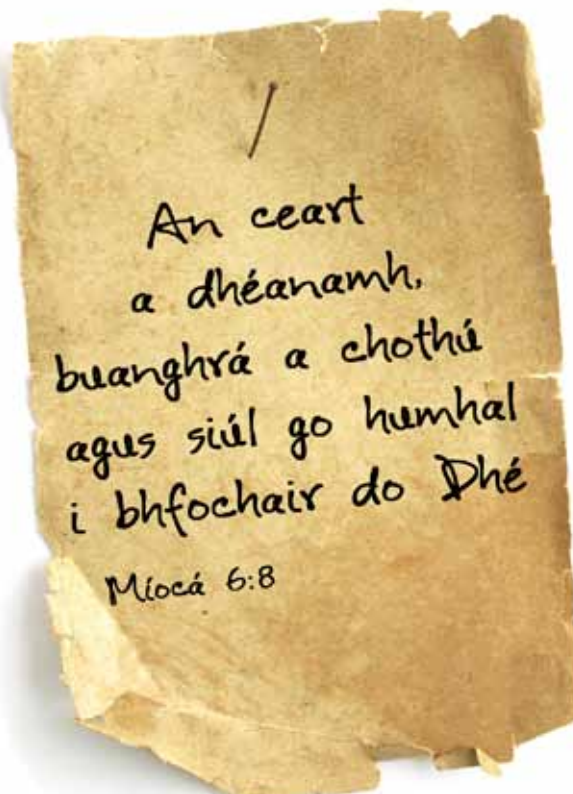 An ceart
a dhéanamh,
buanghrá a chothú
agus siúl go humhal
i bhfochair do Dhé
Míocá 6:8